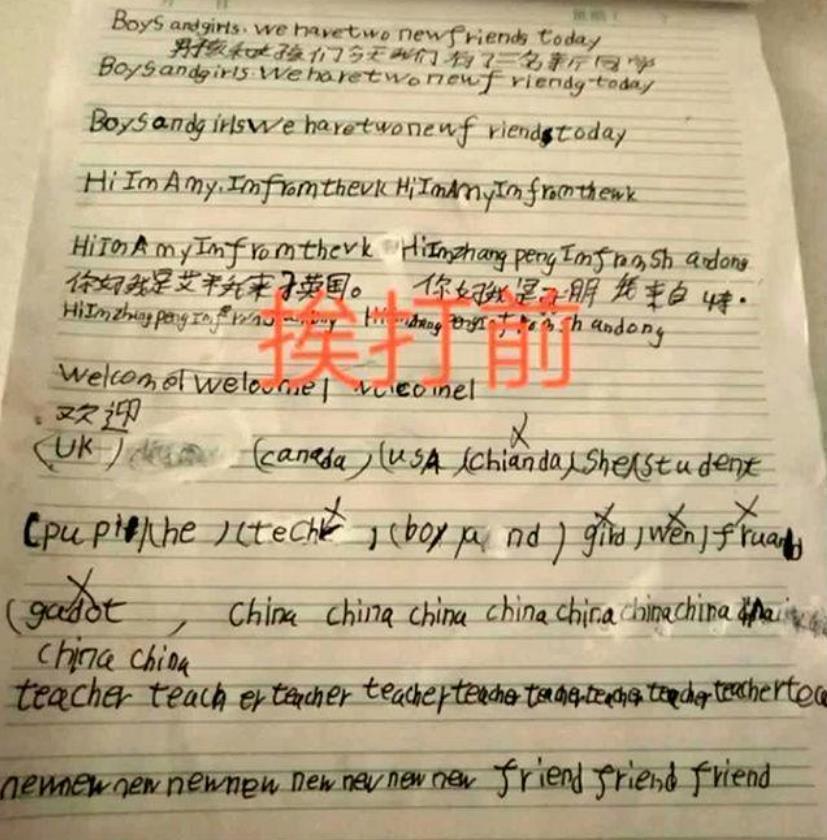 Boys andgirls. we havetwo newfriends today
男孩和女孩们今天我们有了二名新同学
Boysandgirls.Wehavetwonewf riendg today
Boysandg irlsWe havetwonewf riendstoday
Hi ImAmy.Imfromthevk HiImAmyImfromthewk
HiImAmyImfromthevk HiImzhangpengImfromSh andong
你好我是艾米我来于英国。 你好我是 朋 我来自
HiImzhangpengImf
sh andong
挨打前
Welcome!welcome!
欢迎
(UK) (canada)(USA)(chianda)she(student
(he)(boy nd) gird)wen)fruand
(gadot , China china china china china chinachina
china china
teacher teach er teacher teacherteacherteacherteacherteacherteachertea
newnewnewnewnew new newnew new friend friend friend